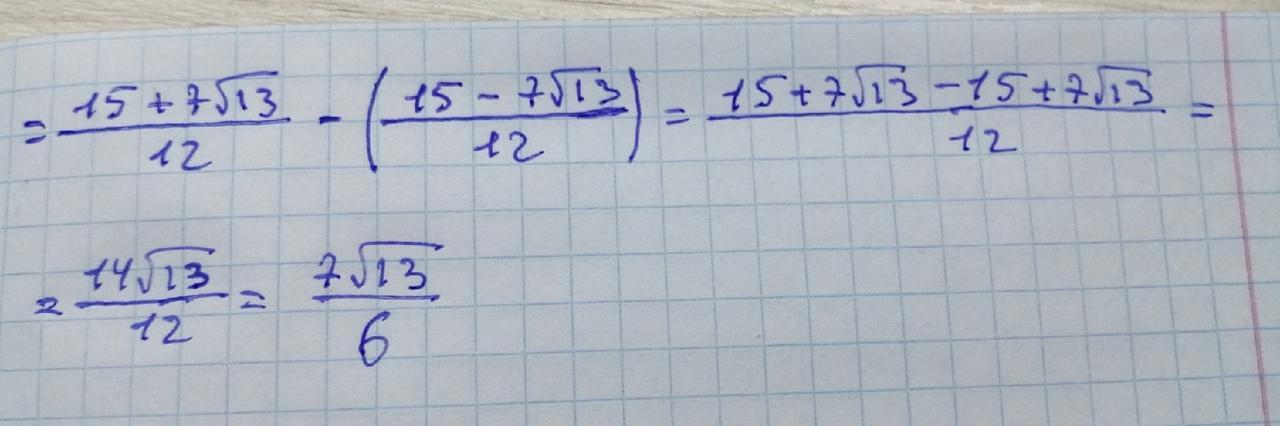 = (15 + 7√13)/12 - ((15 - 7√13)/12) = (15 + 7√13 - 15 + 7√13)/12 =
= 14√13/12 = 7√13/6